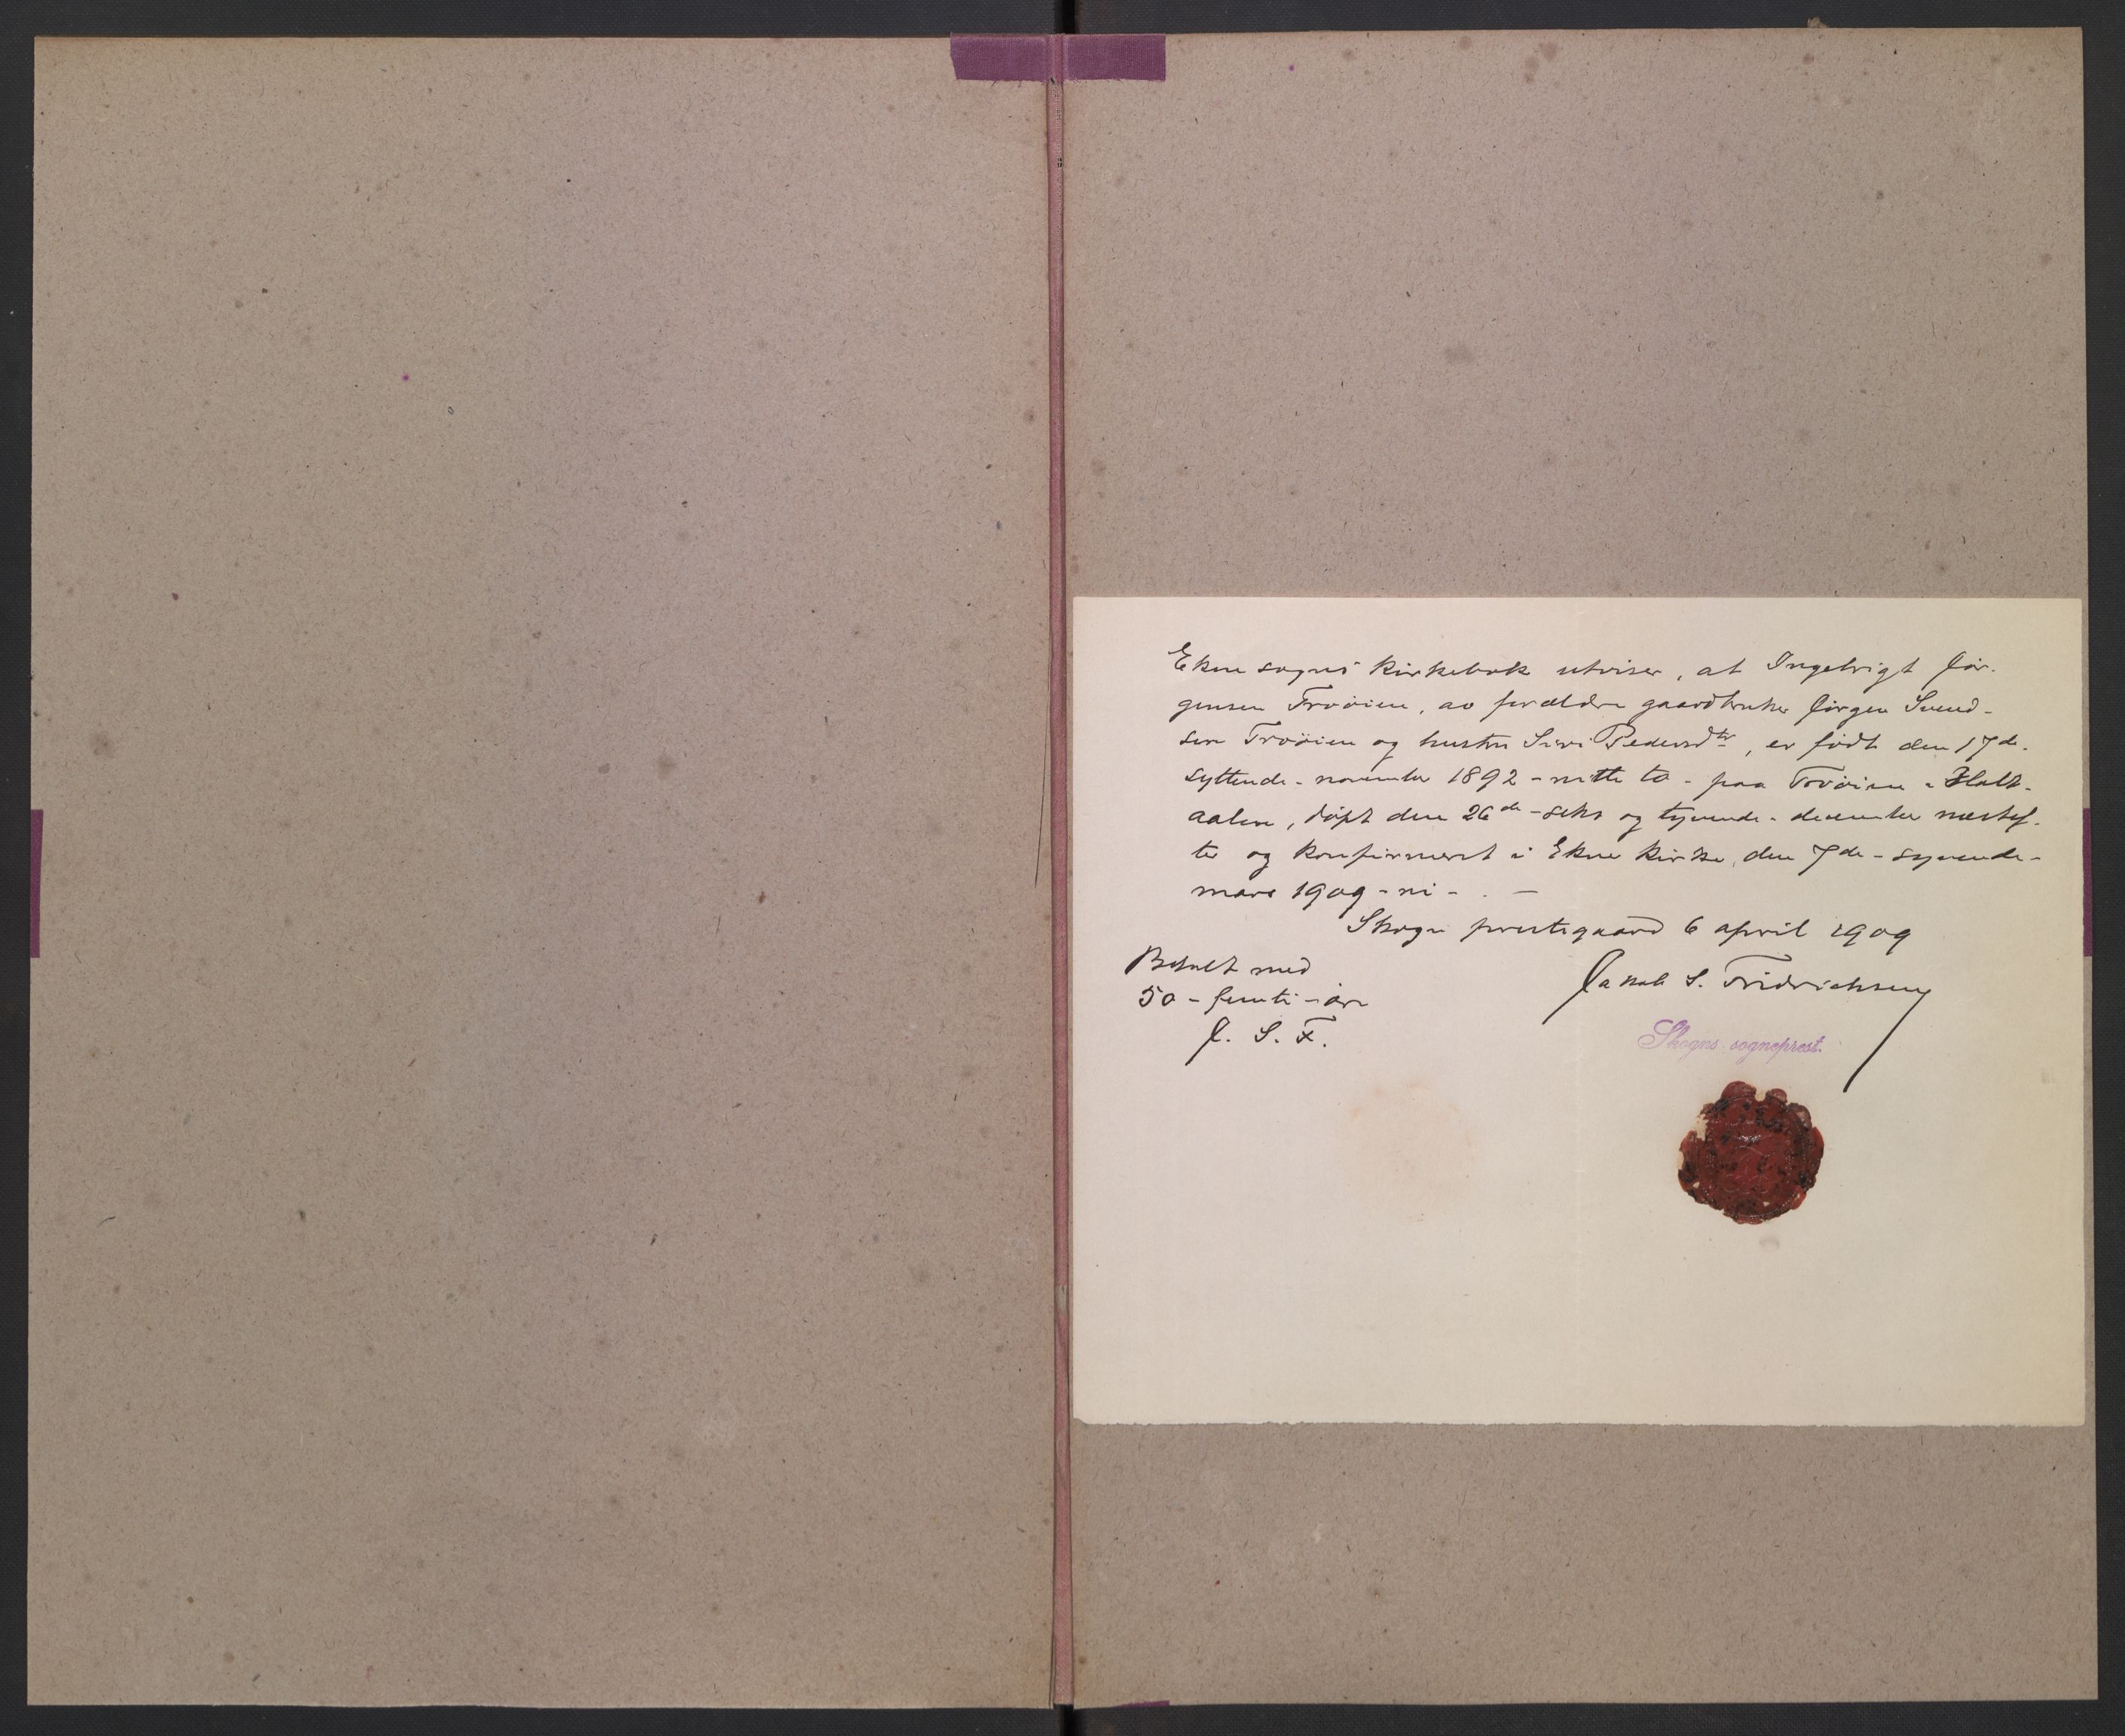 Ekne sogns kirkebok utviser, at Ingebrigt Jør-
gensen Trøöien, av forældre gaardbruker Jørgen Svend-
sen Trøöien og hustru Siri Pedersdtr, er født den 17de-
syttende- november 1892 - nitti to - paa Trøöien i Holt-
aalen, døpt den 26de - seks og tyvende - december næstef-
ter og konfirmert i Ekne kirke den 7de - syvende -
mars 1909 - ni - . -
Skogn prestegaard 6 april 1909
Betalt med
50 - femti - øre
J. S. F.
Jakob S. Fridrichsen
Skogns sogneprest.